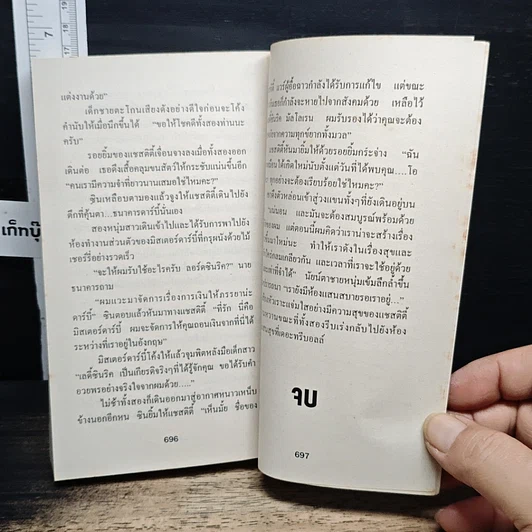 แต่งงานด้วย"
เด็กชายตะโกนเสียงดังอย่างดีใจก่อนจะโค้ง
คำนับให้เมื่อนึกขึ้นได้ "ขอให้โชคดีทั้งสองท่านนะ
ครับ"
รอยยิ้มของแชสตีตี้เจื่อนจางลงเมื่อทั้งสองออก
เดินต่อ เธอดึงเสื้อคลุมขนสัตว์ให้กระชับแน่นขึ้นอีก
"คนเรามีความจำที่ยาวนานเสมอใช่ไหมคะ?"
ซินเหลือบตามองแล้วจูงให้แชสตีตี้เดินไปยัง
ตึกที่คุ้นตา...ธนาคารดาร์บี้นั่นเอง
สองหนุ่มสาวเดินเข้าไปและได้รับการพาไปยัง
ห้องทำงานส่วนตัวของมิสเตอร์ดาร์บี้ที่กรุผนังด้วยไม้
เชอร์รี่อย่างรวดเร็ว
"จะให้ผมรับใช้อะไรครับ ลอร์ดซินริค" นาย
ธนาคารถาม
"ผมแวะมาจัดการเรื่องการเงินให้ภรรยาน่ะ
ดาร์บี้" ซินตอบแล้วหันมาทางแชสตีตี้ "ที่รัก นี่คือ
มิสเตอร์ดาร์บี้ ผมจะจัดการให้คุณถอนเงินจากที่นี่ได้
ระหว่างที่เราอยู่ในอังกฤษ"
มิสเตอร์ดาร์บี้โค้งให้แล้วจุมพิตหลังมือเด็กสาว
"เลดี้ซินริค เป็นเกียรติจริงๆที่ได้รู้จักคุณ ขอได้รับคำ
อวยพรอย่างจริงใจจากผมด้วย....."
ไม่ช้าทั้งสองก็เดินออกมาสู่อากาศหนาวเหน็บ
ข้างนอกอีกหน ซินยิ้มให้แชสตีตี้ "เห็นมั้ย ชื่อของ
696
นาร์ผู้อื้อฉาวกำลังได้รับการแก้ไข แต่ขณะ
ก็กำลังจะหายไปจากสังคมด้วย เหลือไว้
ซินริค มัลโลเรน ผมรับรองได้ว่าคุณจะต้อง
จากความทุกข์ยากทั้งมวล"
แชสตีตี้หันมายิ้มให้ด้วยรอยยิ้มกระจ่าง "ฉัน
เกิดใหม่นับตั้งแต่วันที่ได้พบคุณ....โอ
ทุกอย่างจะต้องเรียบร้อยใช่ไหมคะ?"
ดึงตัวหล่อนเข้าสู่วงแขนทั้งๆที่ยังเดินอยู่บน
แน่นอน และมันจะต้องสมบูรณ์พร้อมด้วย
แต่ตอนนี้ผมคิดว่าเราน่าจะสร้างเรื่อง
ใหม่น่ะ ทำให้เราดังในเรื่องสุขและ
กลมเกลียวกัน และเวลาที่เราจะใช้อยู่ด้วย
ทำได้" นัยน์ตาชายหนุ่มเข้มลึกล้ำขึ้น
"เรายังมีห้องแสนสบายรออยู่..."
หัวเราะแจ่มใสอย่างมีความสุขของแชสตีตี้
หวานขณะที่ทั้งสองรีบเร่งกลับไปยังห้อง
สุขที่เดอะทรีบอลล์
จบ
697
เก็ทบุ๊
7
19